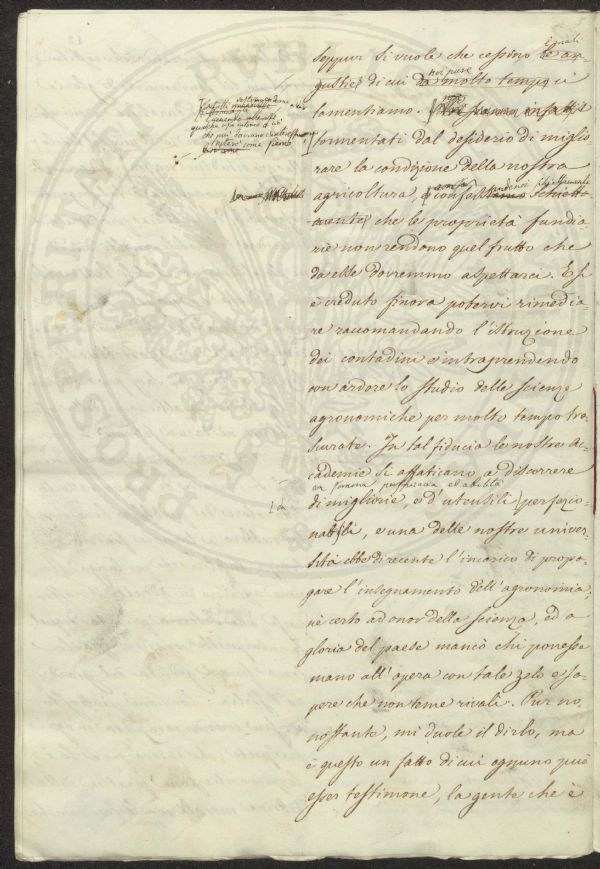 seppur si vuole che cessino le an-
gustie di cui da molto tempo ci
noi pure
lamentiamo. Noi siamo infatti
tormentati dal desiderio di miglio-
rare la condizione della nostra
agricoltura, e
che le proprietà fundia-
rie non rendono quel frutto che
da elle dovremmo aspettarci. E si
è creduto finora potervi rimedia-
re raccomandando l'istruzione
dei contadini e intraprendendo
con ardore lo studio delle scienze
agronomiche per molto tempo tra-
scurate. In tal fiducia le nostre Ac-
cademie si affaticano a discorrere
con somma perspicacia ed abilità
di migliorie, e d'utensili perfezio-
nabili, e una delle nostre univer-
sità ebbe di recente l'incarico di propa-
gare l'insegnamento dell'agronomia;
nè certo ad onor della scienza, ed a
gloria del paese mancò chi ponesse
mano all'opera con tale zelo e sa-
pere che non teme rivali. Pur no-
nostante, mi duole il dirlo, ma
è questo un fatto di cui ognuno può
esser testimone, la gente che è